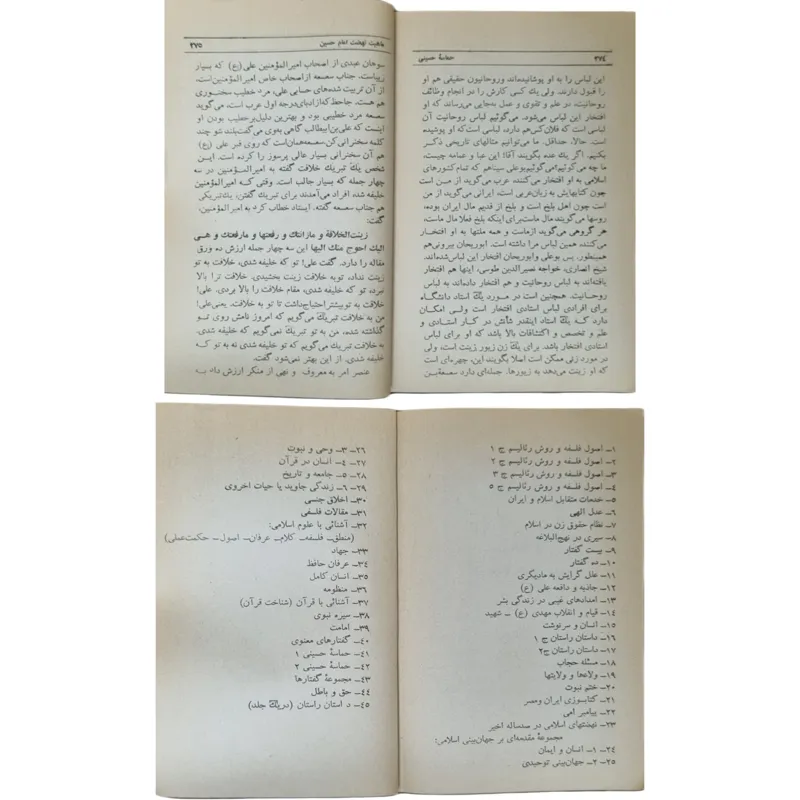 ۳۷۴ حماسهٔ حسینی
این لباس را به او پوشانیده‌اند وروحانیون حقیقی هم او
را قبول دارند. ولی یك كسی كارش را در انجام وظائف
روحانیت، در علم و تقوی و عمل به‌جایی می‌رساند كه او
افتخار این لباس می‌شود. می‌گوئیم لباس روحانیت آن
لباسی است كه فلان‌كس‌هم دارد، لباسی است‌كه او پوشیده
است. حالا، حداقل. ما می‌توانیم مثالهای تاریخی ذكر
بكنیم. اگر یك عده بگویند آقا! این عبا و عمامه چیست،
ما چه می‌گوئیم؟می‌گوئیم‌بوعلی سیناهم كه تمام كشورهای
اسلامی به او افتخار می‌كنند، عرب می‌گوید از مــن است
چون كتابهایش به زبان‌عربی است، ایرانی می‌گوید از من
است چون اهل بلخ است و بلخ از قدیم مال ایران بوده،
روسها می‌گویند مال ماست‌برای اینكه بلخ فعلا مال ماست،
هر گروهی می‌گوید ازماست و همه ملتها به او افتخــار
می‌كنند، همین لباس مرا داشته است. ابوریحان بیرونی‌هم
همینطور. پس بوعلی و ابوریحان افتخار این لباس‌شده‌اند.
شیخ انصاری، خواجه نصیرالدین طوسی، اینها هم افتخار
یافته‌اند به لباس روحانیت و هم افتخار داده‌اند به لباس
روحــانیت. همچنین است در مــورد یك استاد دانشگاه
برای افرادی لباس استادی افتخار است ولــی امكان
دارد كــه یك استاد اینقدر شأنش در كــار استــادی و
علم و تخصص و اكتشافات بالا باشد كه او برای لباس
استادی افتخار باشد. برای یك زن زیور زینت است، ولی
در مورد زنی ممكن است اصلا بگویند این، چهره‌ای است
كه او زینت می‌دهد به زیورها. جمله‌ای دارد صعصعة‌بن
ماهیت نهضت امام حسین ۳۷۵
سوهان عبدی از اصحاب امیرالمؤمنین علی(ع) كه بسیار
زیباست. جناب صعصعه ازاصحاب خاص امیرالمؤمنین‌است،
از آن تربیت شده‌های حسابی علی، مرد خطیب سخنــوری
هم هست. جاحظ كه‌ازادبای‌درجه اول عرب است، می‌گوید
صعصعه مرد خطیبی بود و بهترین دلیل‌برخطیب بودن او
اینست كه علی‌بن‌ابیطالب گاهی به‌وی می‌گفت‌بلند شو چند
كلمه سخنرانی كن.صعصعه‌همان‌است كه روی قبر علی (ع)
آن سخنرانی بسیار عالی پرسوز را كرده است. ایــن
شخص یك تبریك خلافت گفته به امیرالمؤمنین در سه
چهار جمله كه بسیار جالب است. وقتی كــه امیرالمؤمنین
خلیفه شد، افراد می‌آمدند برای تبریك گفتن، یك‌تبریكی
هم جناب صعصعه گفته. ایستاد خطاب كرد به امیرالمؤمنین،
گفت:
زینت‌الخلافة و مازانتك و رفعتها و مارفعتك و هــی
الیك احوج منك الیها این سه چهار جمله ارزش ده ورق
مقاله را دارد. گفت علی! تو كه خلیفه شدی، خلافت به تو
زینت نداد، توبه خلافت زینت بخشیدی. خلافت ترا بالا
نبرد، تو كه خلیفه شدی، مقام خلافت را بالا بردی.
خلافت به توبیشتراحتیاج‌داشت تا تو به خلافت. یعنی‌علی!
من به خلافت تبریك می‌گویم كه امروز نامش روی تــو
گذاشته شده، من به تو تبریك نمی‌گویم كه خلیفه شدی.
به خلافت تبریك می‌گویم كه تو خلیفه شدی نه به تو كــه
خلیفه شدی. از این بهتر نمی‌شود گفت.
عنصر امر به معروف و نهی از منكر ارزش داد بــه
۱– اصول فلسفه و روش رئالیسم ج ۱
۲– اصول فلسفه و روش رئالیسم ج ۲
۳– اصول فلسفه و روش رئالیسم ج ۳
۴– اصول فلسفه و روش رئالیسم ج ۵
۵– خدمات متقابل اسلام و ایران
۶– عدل الهی
۷– نظام حقوق زن در اسلام
۸– سیری در نهج‌البلاغه
۹– بیست گفتار
۱۰– ده گفتار
۱۱– علل گرایش به مادیگری
۱۲– جاذبه و دافعه علی (ع)
۱۳– امدادهای غیبی در زندگی بشر
۱۴– قیام و انقلاب مهدی (ع) – شهید
۱۵– انسان و سرنوشت
۱۶– داستان راستان ج ۱
۱۷– داستان راستان ج۲
۱۸– مسئله حجاب
۱۹– ولاءها و ولایتها
۲۰– ختم نبوت
۲۱– كتابسوزی ایران ومصر
۲۲– پیامبر امی
۲۳– نهضتهای اسلامی در صدساله اخیر
مجموعهٔ مقدمه‌ای بر جهان‌بینی اسلامی:
۲۴– ۱– انسان و ایمان
۲۵– ۲– جهان‌بینی توحیدی
۲۶– ۳– وحی و نبوت
۲۷– ۴– انسان در قرآن
۲۸– ۵– جامعه و تاریخ
۲۹– ۶– زندگی جاوید یا حیات اخروی
۳۰– اخلاق جنسی
۳۱– مقالات فلسفی
۳۲– آشنائی با علوم اسلامی:
(منطق– فلسفه– كلام– عرفان– اصول– حكمت‌عملی)
۳۳– جهاد
۳۴– عرفان حافظ
۳۵– انسان كامل
۳۶– منظومه
۳۷– آشنائی با قرآن (شناخت قرآن)
۳۸– سیره نبوی
۳۹– امامت
۴۰– گفتارهای معنوی
۴۱– حماسهٔ حسینی ۱
۴۲– حماسهٔ حسینی ۲
۴۳– مجموعهٔ گفتارها
۴۴– حق و باطل
۴۵– د استان راستان (دریك جلد)